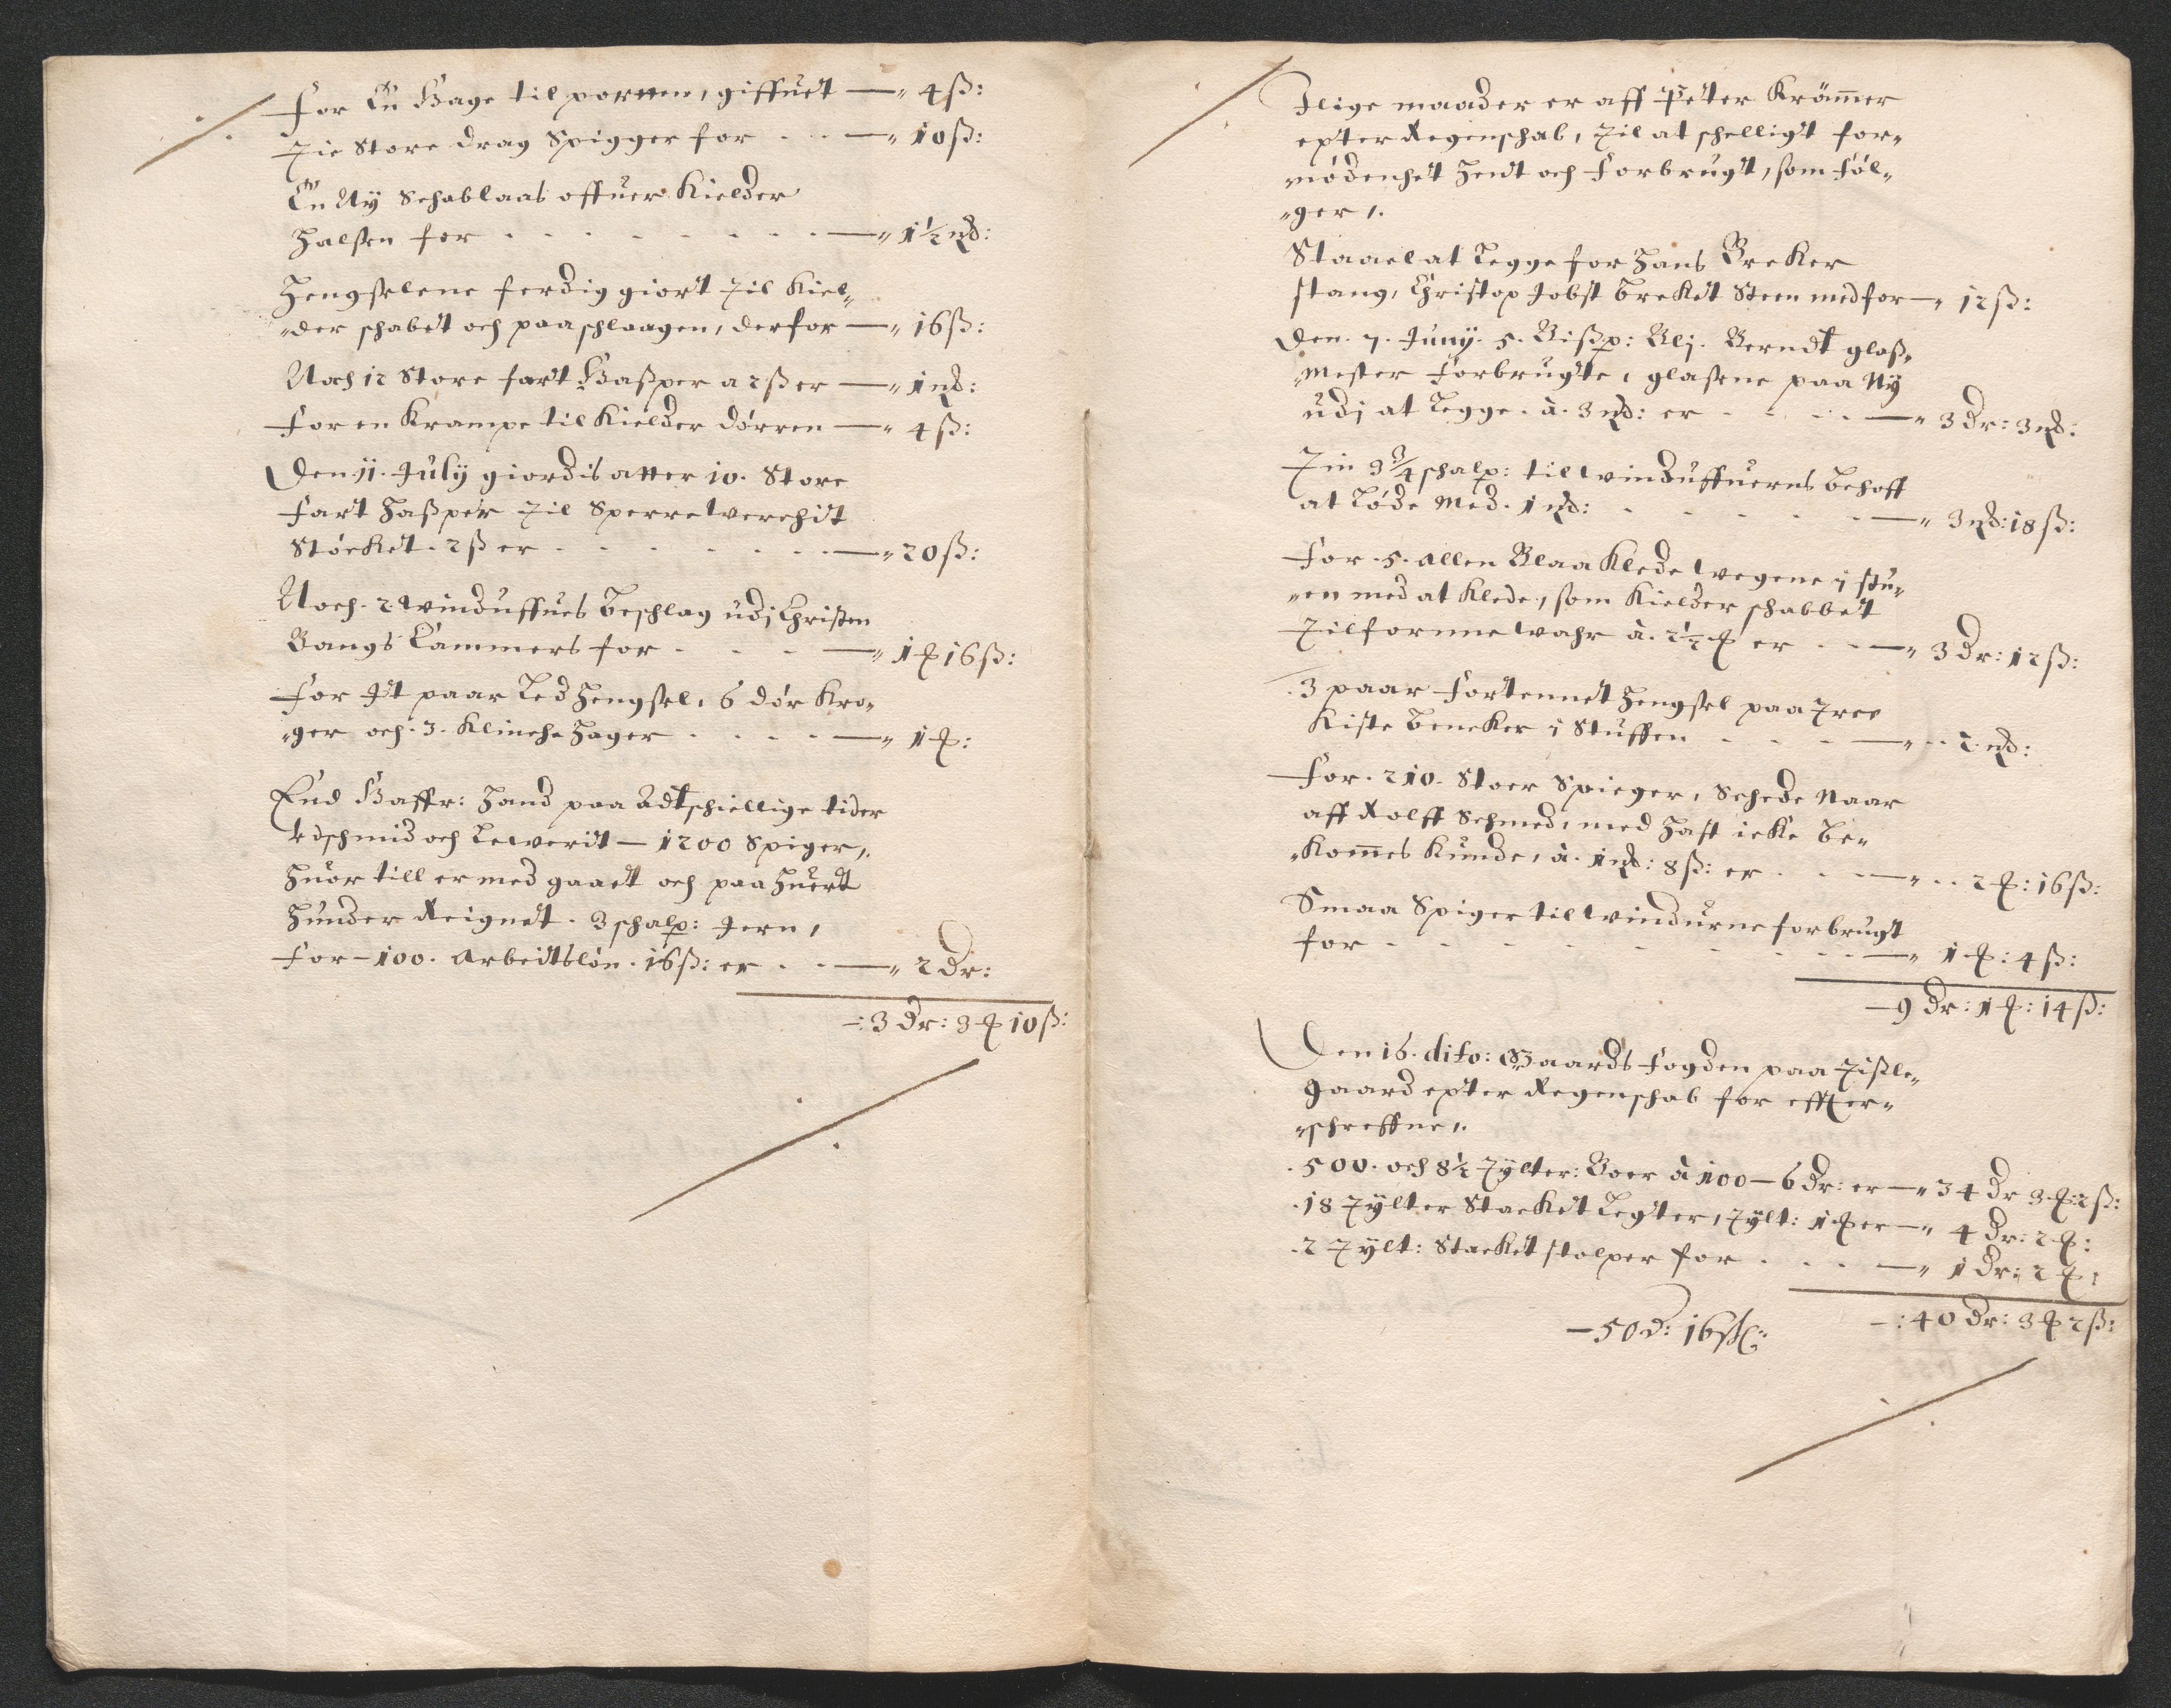 For En Hage til porttten, giffuet — 4 ß:
Tie Store drag Spigger for — 10 ß:
En Ny Schablaas offuer Kielder
Halsen for — 1½ mk:
Hengslene ferdig giort Til Kiel„
„der schabet och paaschlaagen, derfor — 16 ß:
Noch 12 Store fart Hasper a 2 ß er — 1 mk:
For en Krampe til Kielder dørren — 4 ß:
Den 11. July giordis atter 10. Store
Fart Hasper Til Sperrelverchit
Støcket. 2 ß er — 20 ß:
Noch. 2 Winduffues beschlag udj Christen
Bangs Cammers for — 1 ƥ 16 ß:
For It paar Led Hengsel, 6 dør Kro„
„ger och. 3. Klinche Hager — 1 ƥ:
End Haffr: Hand paa Adtschiellige tider
udschmid och Leweridt — 1200 Spiger,
Huor till er med gaaet och paa Huert
Hunder Reignet. 3 schalp: Jern,
For — 100. Arbeidtsløn. 16 ß: er — 2 dr:
—: 3 Dr: 3 ƥ 10 ß:
Ilige maader er aff Peter Krämer
epter Regenschab, Til at shelligt for„
„nødenhet Hendt och Forbrugt, som Føl„
„ger,.
Staael at Legge for Hans Breker
stang, Christop Jobst breket Steen med for — 12 ß:
Den. 7. Juny. 5. Bißp: Blj. Berndt glaß„
„mester Forbrugte, glasene paa Ny
udj at Legge. à. 3 mk: er — 3 Dr: 3 mk:
Tin 3¾ schalp: til winduffuerns behoff
at Løde Med. 1 mk: — 3 mk: 18 ß:
For. 5. allen Blaa Klede wegene i stu„
„en med at Klede, som Kielder schabbet
Tilfornne wahr à. 2½ ƥ er — 3 Dr: 12 ß:
3 paar Fortennet Hengsel paa Tree
Kiste bencker i Stuffen — 2 mk:
For. 210. Stoer Spieger, Schede Naar
aff Rolff Schmed, med Hast icke be„
„Komes Kunde, à. 1 mk: 8 ß: er — 2 ƥ: 16 ß:
Smaa Spiger til windurne forbrugt
for — 1 ƥ: 4 ß:
— 9 Dr: 1 ƥ: 14 ß:
Den 16. dito: Gaards Fogden paa Tißle„
gaard epter Regenschab for effter„
„schreffne,.
500. och 8½ Tylter: Boer à 100 — 6 Dr: er — 34 Dr 3 ƥ: 2 ß:
18 Tylter Stacket Legter, Tylt: 1 ƥ er — 4 Dr: 2 ƥ:
2 Tylt: Stacket stolper for — 1 Dr: 2 ƥ:
—: 40 Dr: 3 ƥ 2 ß:
— 50 d: 16 ß: